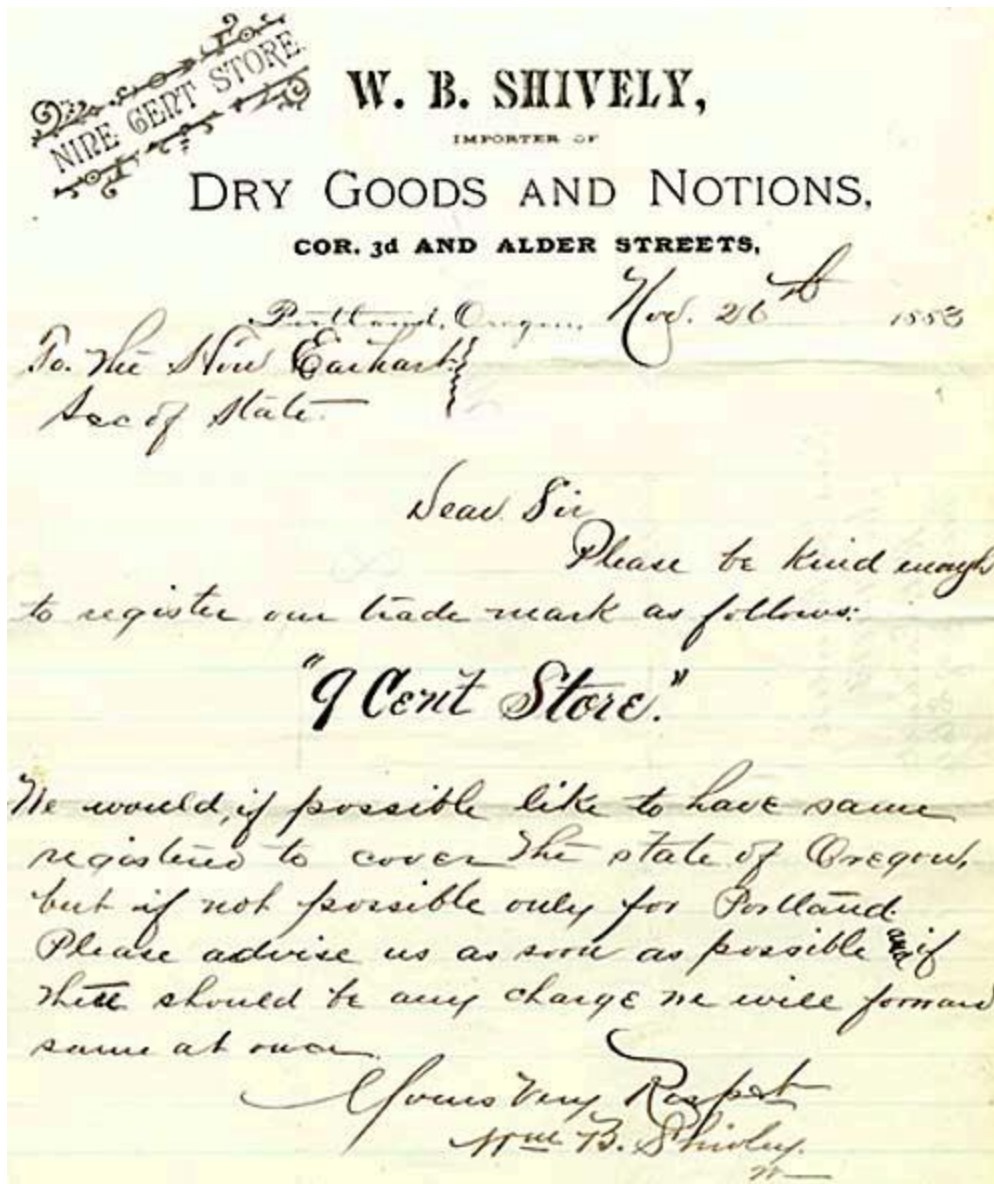 NINE CENT STORE.
W. B. SHIVELY,
IMPORTER OF
DRY GOODS AND NOTIONS,
COR. 3d AND ALDER STREETS,
Portland, Oregon, Nov. 26th 1883
To. The Hon Earhart
Sec of State.
Dear Sir
Please be kind enough
to register our trade mark as follows:
"9 Cent Store."
We would, if possible like to have same
registered to cover the state of Oregon,
but if not possible only for Portland.
Please advise us as soon as possible and if
there should be any charge we will forward
same at once.
Yours Very Respect
Wm B. Shively.